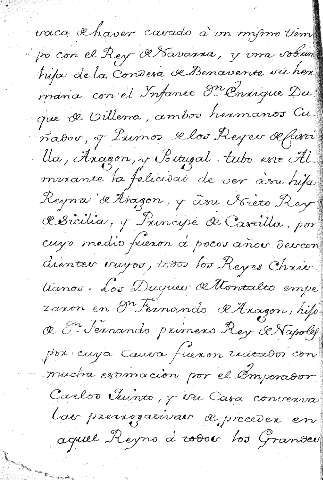 vaca de haver casado à un mismo tiem
po con el Rey de Navarra, y una sobrina
hija de la Condesa de Benavente su her
mana con el Infante Dn. Enrique Du
que de Villena, ambos hermanos Cu
ñados, y Primos de los Reyes de Casti
lla, Aragon, y Portugal. tubo este Al
mirante la felicidad de ver à su hija
Reyna de Aragon, y à su Nieto Rey
de Sicilia, y Principe de Castilla, por
cuyo medio fueron á pocos años descen
dientes suyos, todos los Reyes Chris
tianos. Los Duques de Montalto empe
zaron en Dn. Fernando de Aragon, hijo
de Dn. Fernando primero Rey de Napoles
por cuya causa fueron tratados con
mucha estimacion por el Emperador
Carlos Quinto, y su Casa conserva
las prerrogativas de preceder en
aquel Reyno á todos los Grandes